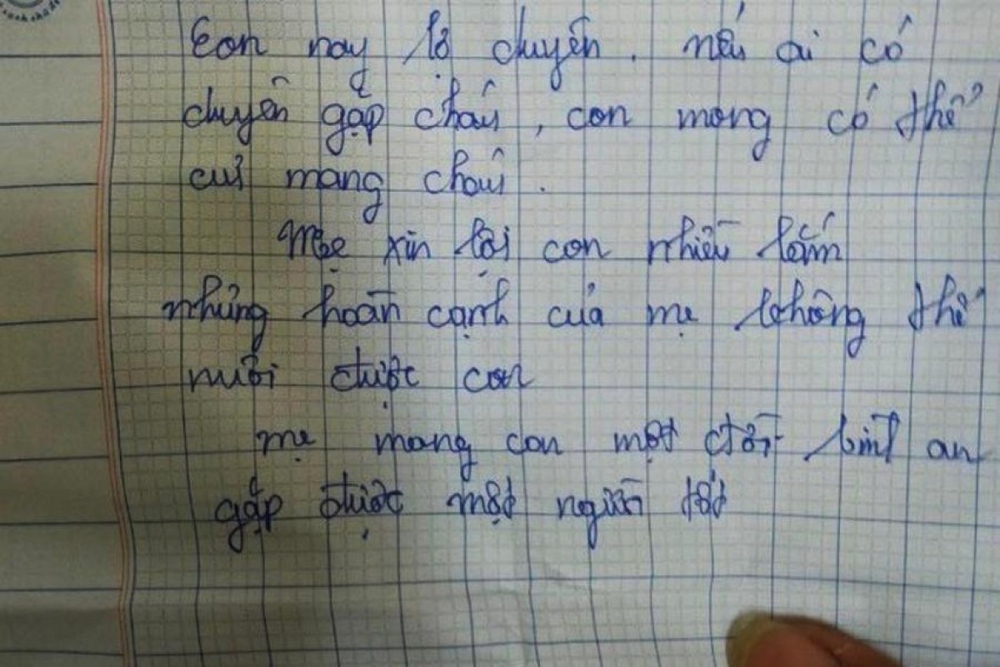 Con nay lỡ chuyện. nếu ai có
chuyện gặp cháu, con mong có thể
cưu mang cháu.
Mẹ xin lỗi con nhiều lắm
nhưng hoàn cạnh của mẹ không thể
nuôi được con
mẹ mong con một đời bình an
gặp được một người tốt